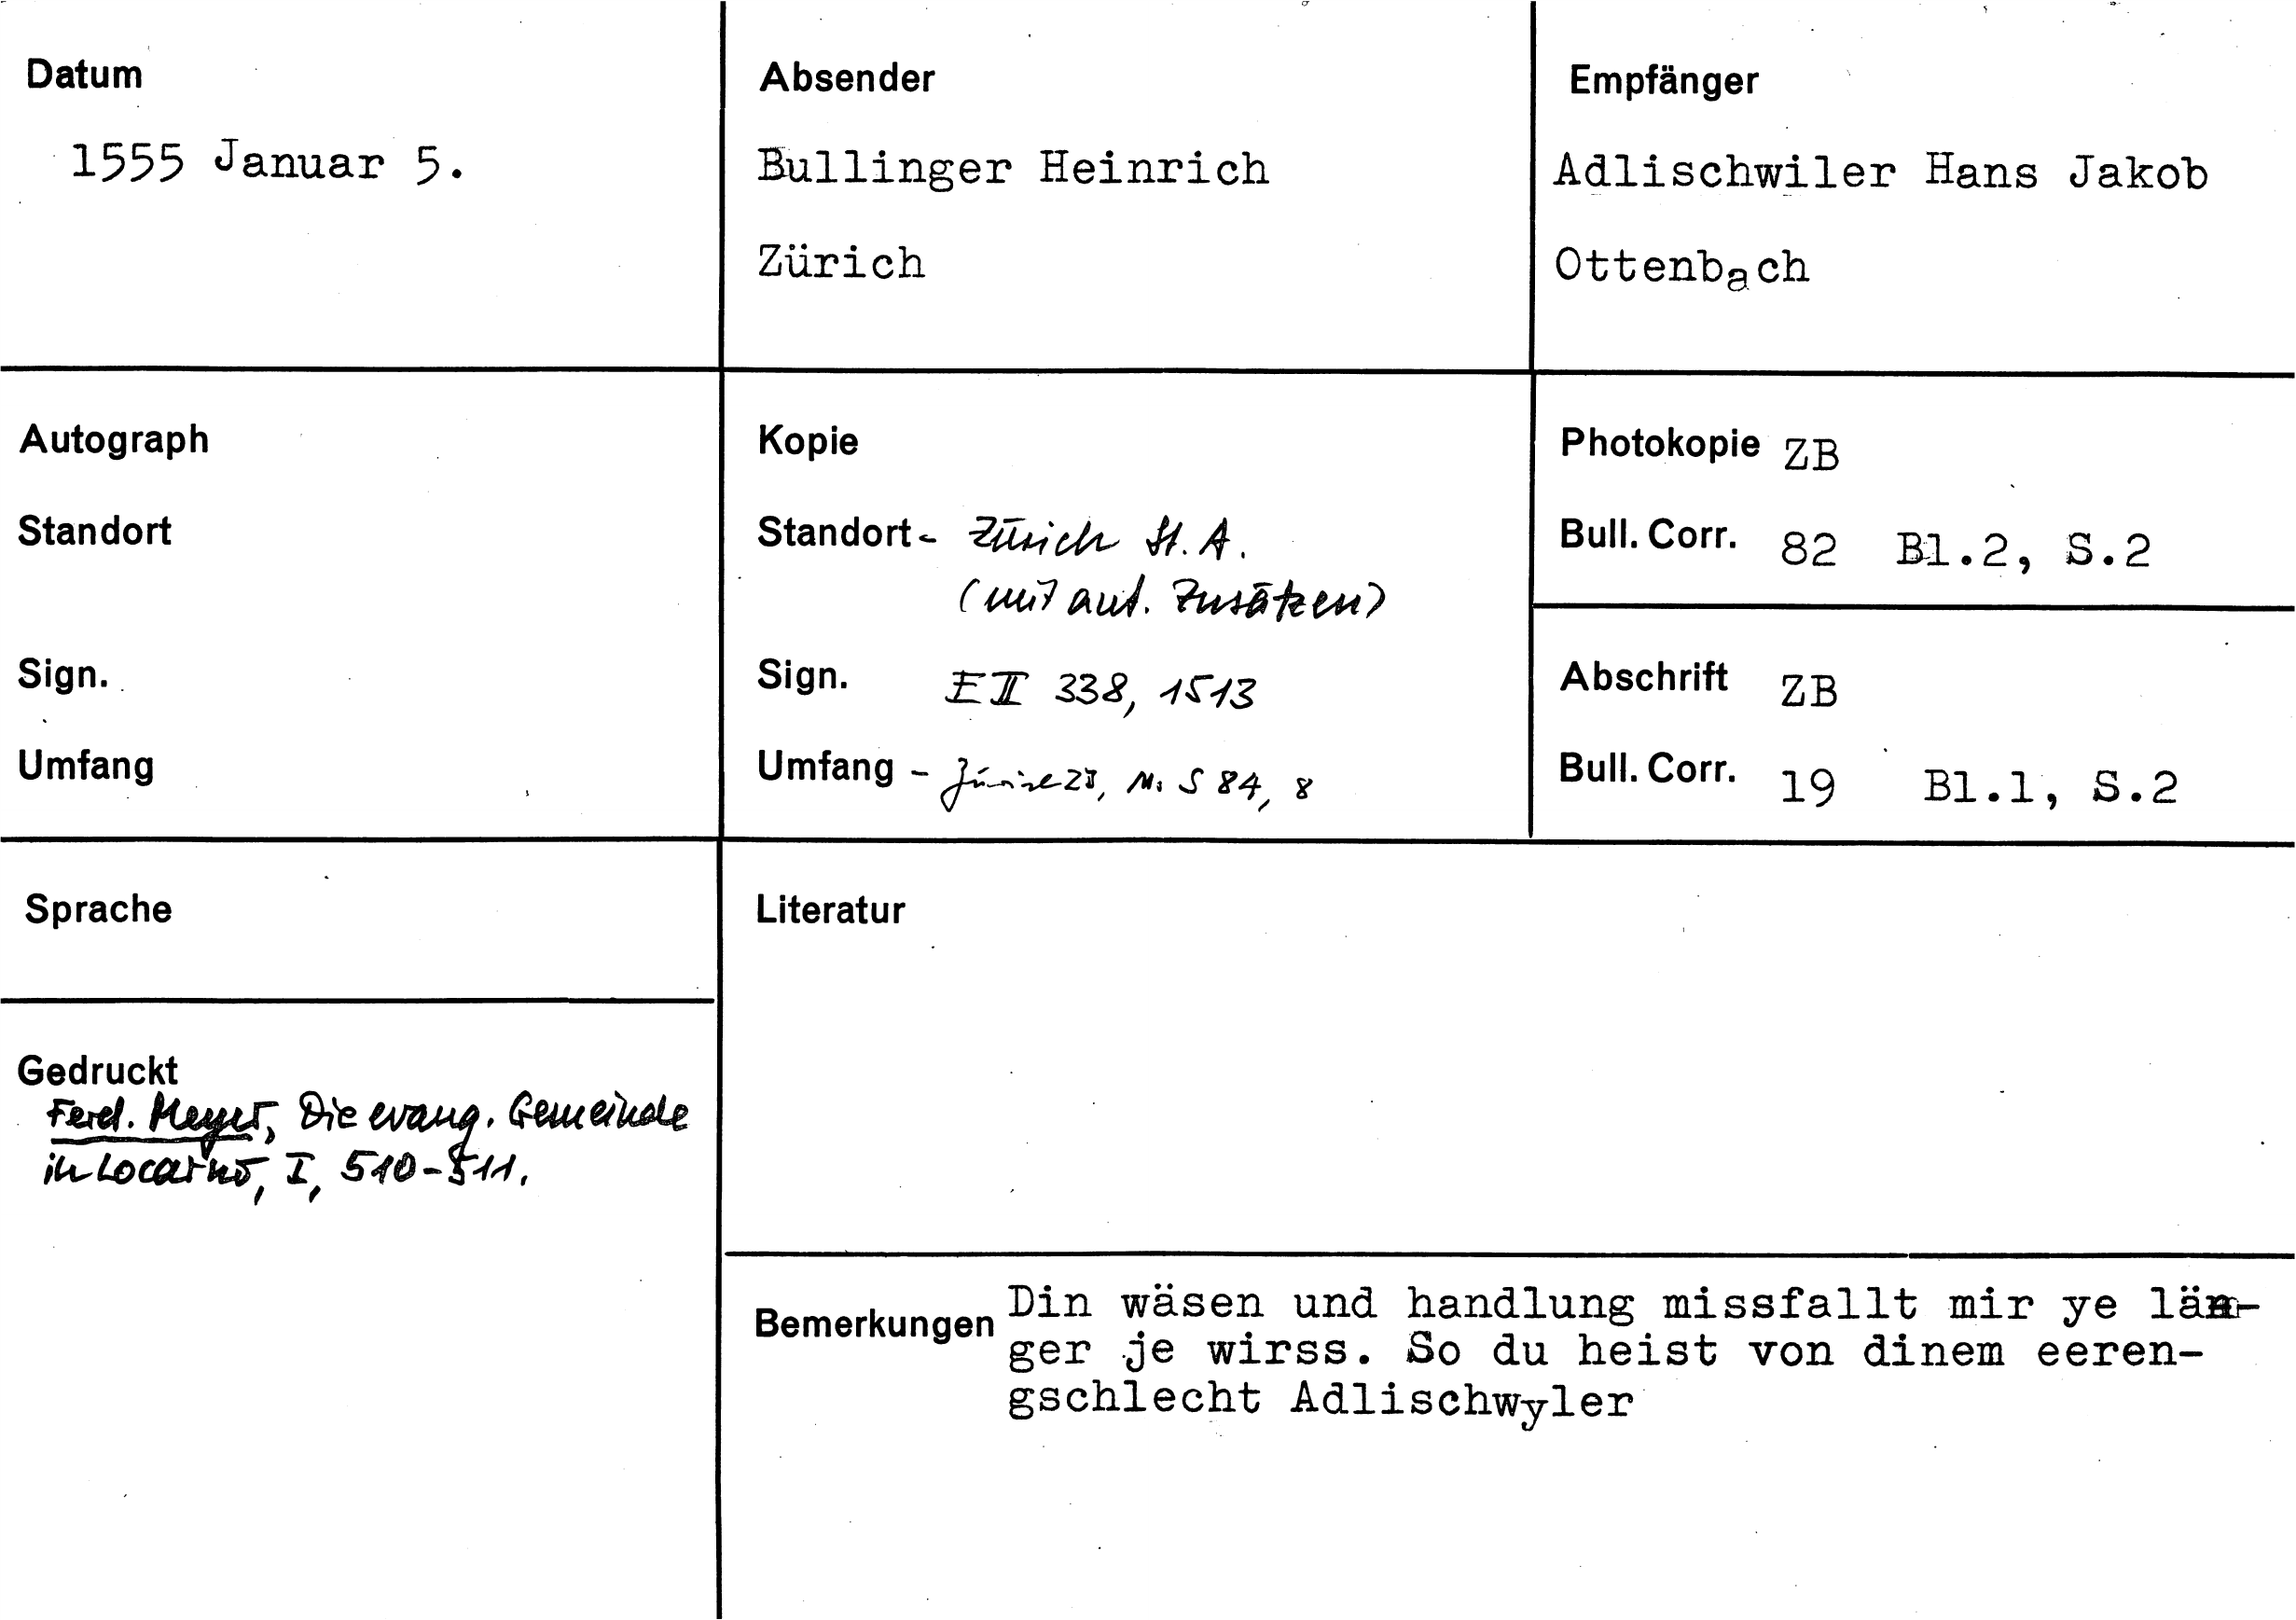 Datum
1555 Januar 5.
Absender
Bullinger Heinrich
Zürich
Empfänger
Adlischwiler Hans Jakob
Ottenbach
Autograph
Standort
Sign.
Umfang
Kopie
Standort - Zürich St. A.
(mit aut. Zusätzen)
Sign. E II 338, 1513
Umfang - Zürich ZB, Ms S 84, 8
Photokopie ZB
Bull. Corr. 82 Bl.2, S.2
Abschrift ZB
Bull. Corr. 19 Bl.1, S.2
Sprache
Gedruckt
Ferd. Meyer, Die evang. Gemeinde
in Locarno, I, 510-511.
Literatur
Bemerkungen Din wäsen und handlung missfallt mir ye län-
ger je wirss. So du heist von dinem eeren-
gschlecht Adlischwyler